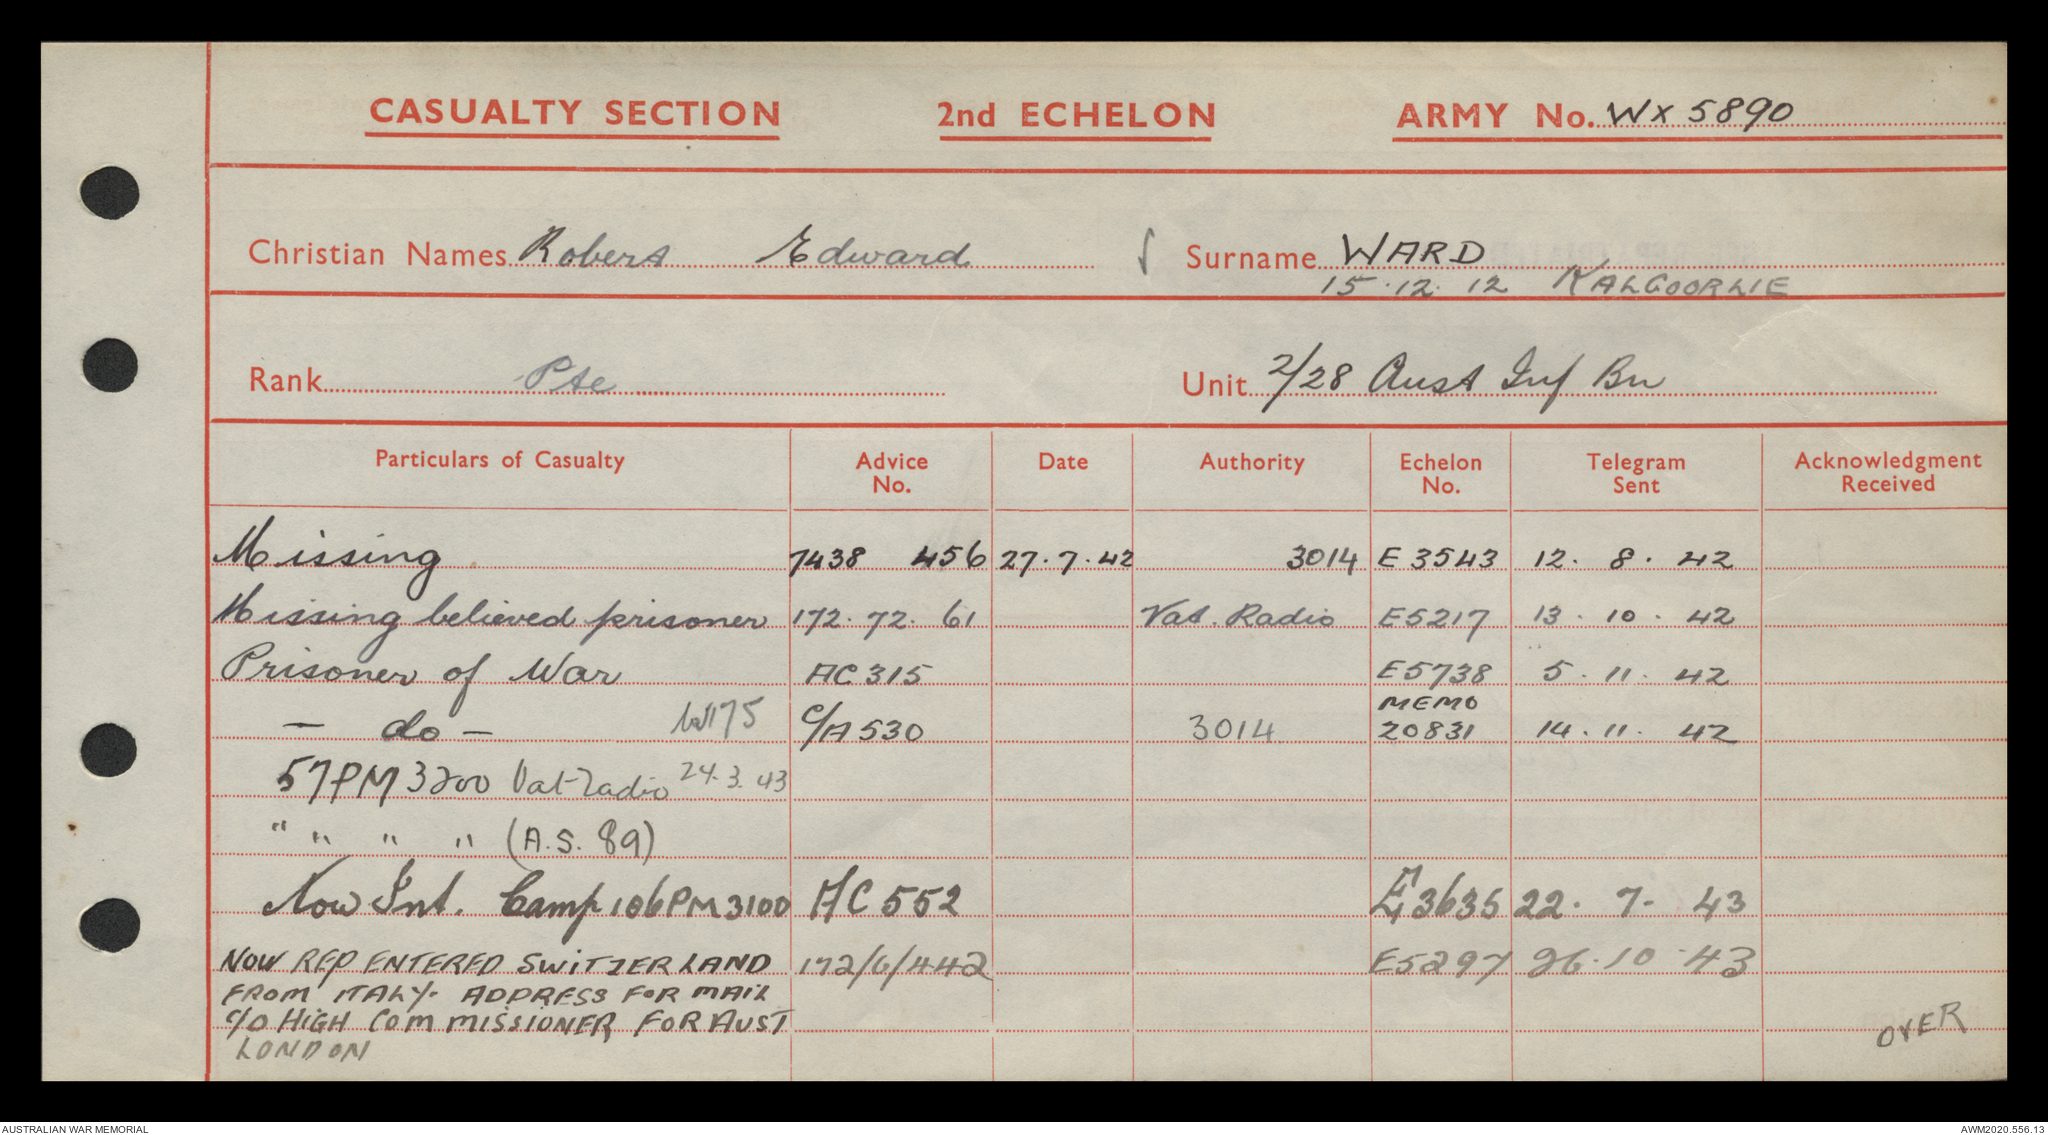 CASUALTY SECTION 2nd ECHELON ARMY No. WX 5890
Christian Names Robert Edward Surname WARD
15.12.12 KALGOORLIE
Rank Pte Unit 2/28 Aust Inf Bn
Particulars of Casualty Advice No. Date Authority Echelon No. Telegram Sent Acknowledgment Received
Missing 7438 456 27.7.42 3014 E 3543 12. 8. 42
Missing believed prisoner 172. 72. 61 Vat. Radio E5217 13. 10. 42
Prisoner of War AC 315 E5738 5. 11. 42
MEMO
- do - W175 C/A 530 3014 20831 14. 11. 42
57 PM 3200 Vat Radio 24.3.43
" " " " (A.S. 89)
Now Int. Camp 106 PM 3100 AC 552 E 3635 22. 7- 43
NOW REP ENTERED SWITZERLAND 172/6/442 E5297 26.10.43
FROM ITALY. ADDRESS FOR MAIL
C/O HIGH COMMISSIONER FOR AUST
LONDON
OVER
AUSTRALIAN WAR MEMORIAL AWM2020.556.13